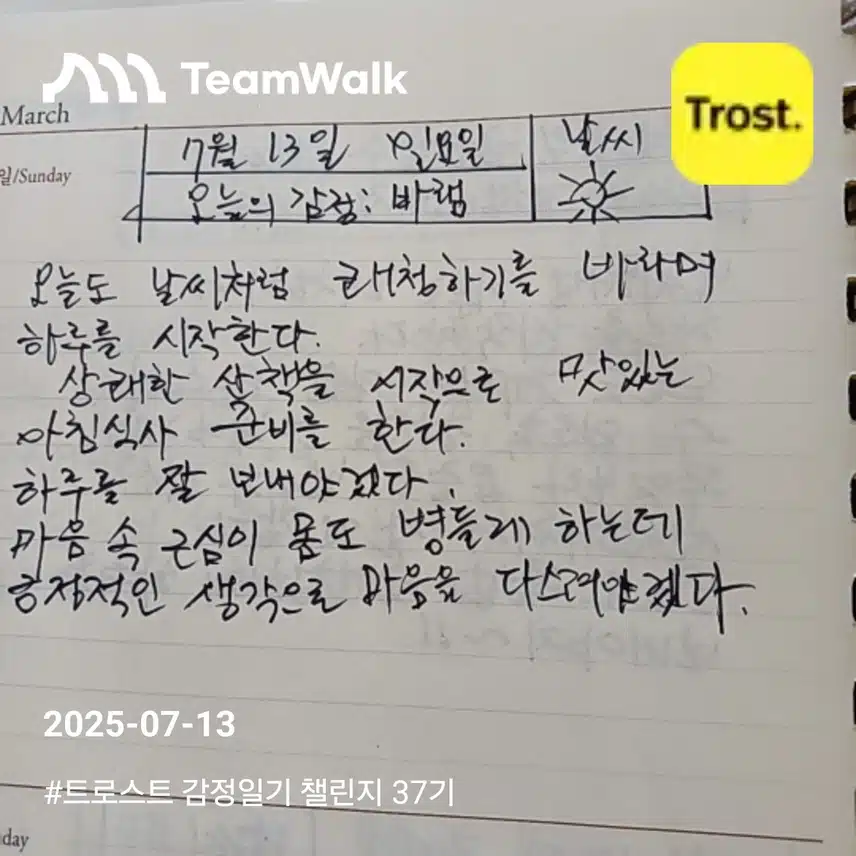 TeamWalk
Trost.
March
일/Sunday
7월 13일 일요일
날씨
오늘의 감정: 바램
오늘도 날씨처럼 쾌청하기를 바라며
하루를 시작한다.
상쾌한 산책을 시작으로 맛있는
아침식사 준비를 한다.
하루를 잘 보내야겠다.
마음 속 근심이 몸도 병들게 하는데
긍정적인 생각으로 마음을 다스려야겠다.
2025-07-13
#트로스트 감정일기 챌린지 37기
day